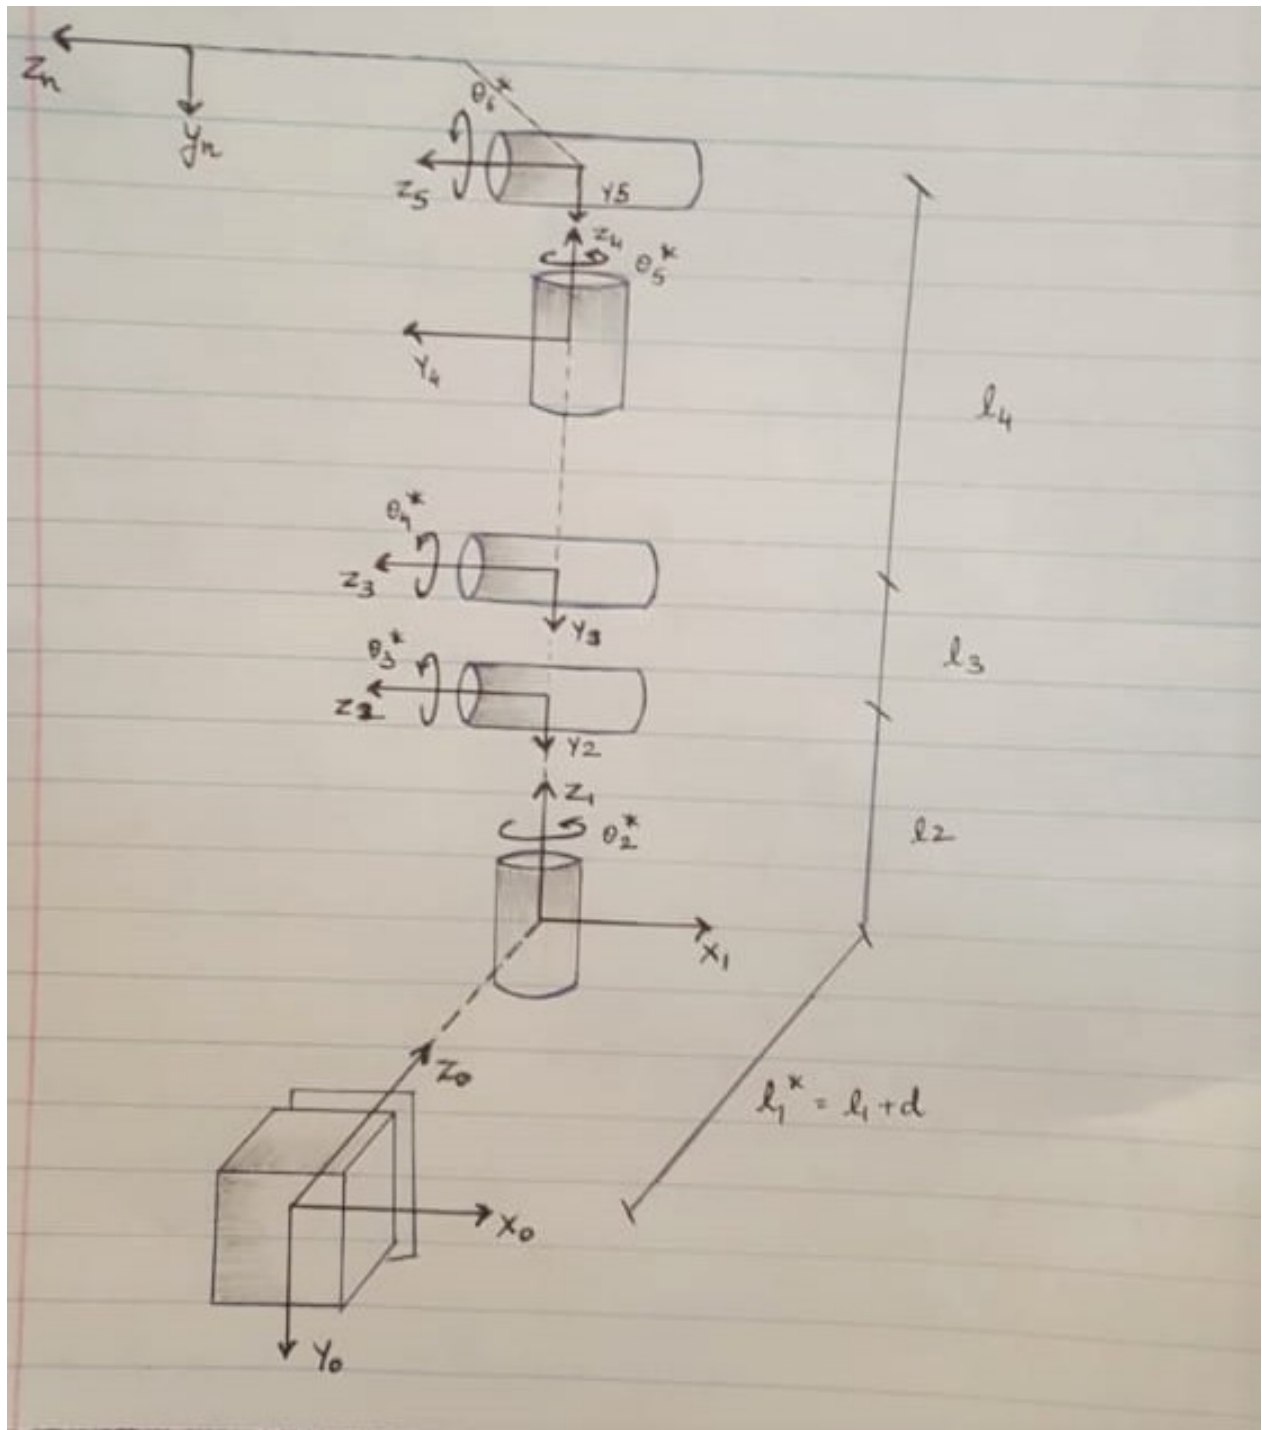 Zn
yn
θ6*
Z5
Y5
Z4
θ5*
Y4
l4
θ4*
Z3
Y3
θ3*
l3
Z2
Y2
Z1
θ2*
l2
X1
Z0
l1* = l1 + d
X0
Y0